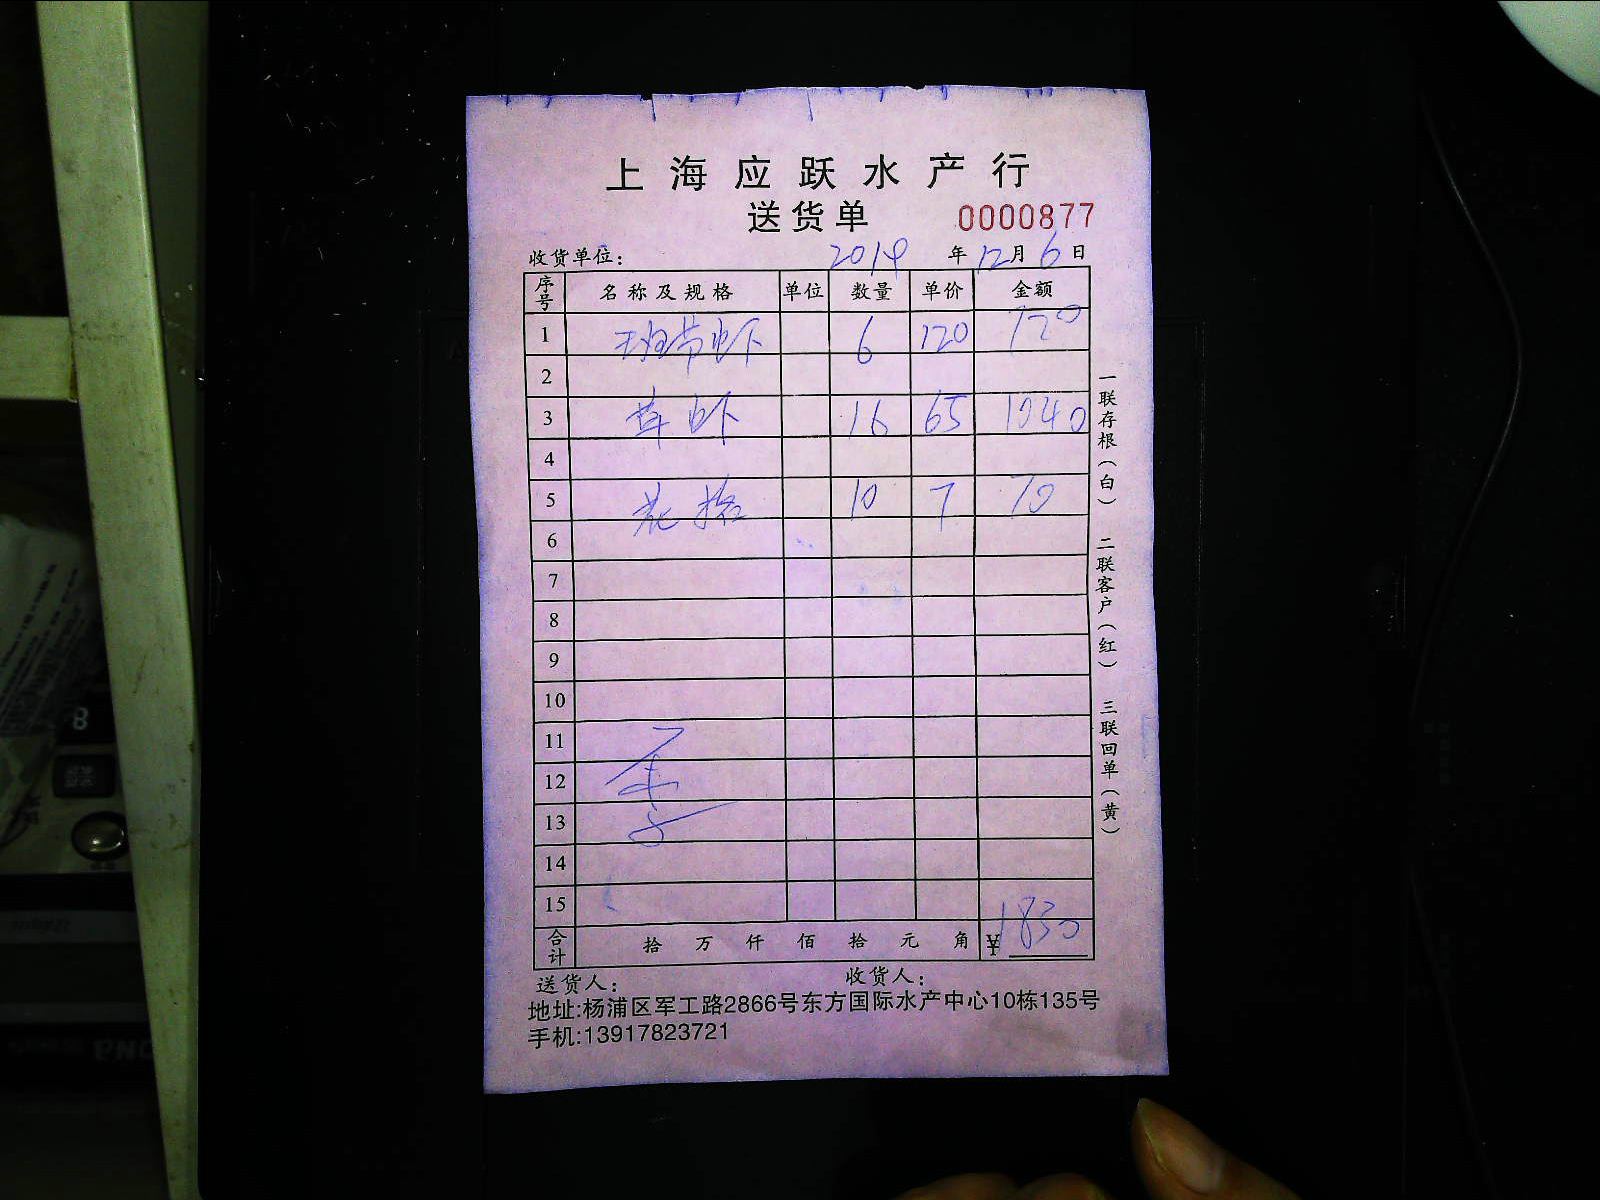 上海应跃水产行
送货单 0000877
收货单位： 2019 年 12 月 6 日
序号 名称及规格 单位 数量 单价 金额
1 班节虾 6 120 720
2
3 草虾 16 65 1040
4
5 花格 10 7 70
6
7
8
9
10
11
12
13
14
15
合计 拾 万 仟 佰 拾 元 角 ¥1830
送货人： 收货人：
地址:杨浦区军工路2866号东方国际水产中心10栋135号
手机:13917823721
一联存根（白） 二联客户（红） 三联回单（黄）